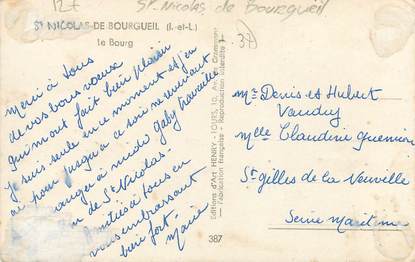 127
St Nicolas de Bourgueil
37
ST NICOLAS-DE-BOURGUEIL (I.-et-L.)
Le Bourg
Merci à tous
de vos bons vœux
qui m'ont fait bien plaisir
je suis seule en ce moment et j'en
ai pour jusqu'à ce soir ne
manger à midi Gaby travaille
de St Nicolas.
amitiés à tous en
vous embrassant
bien fort.
Marie
Editions d'Art HENRY - TOURS, 10, Av. de Grammont
Fabrication française - Reproduction interdite
387
Mr Denis et Hubert
Vaudry
Melle Claudine Guennion
St Gilles de la Neuville
Seine Maritime